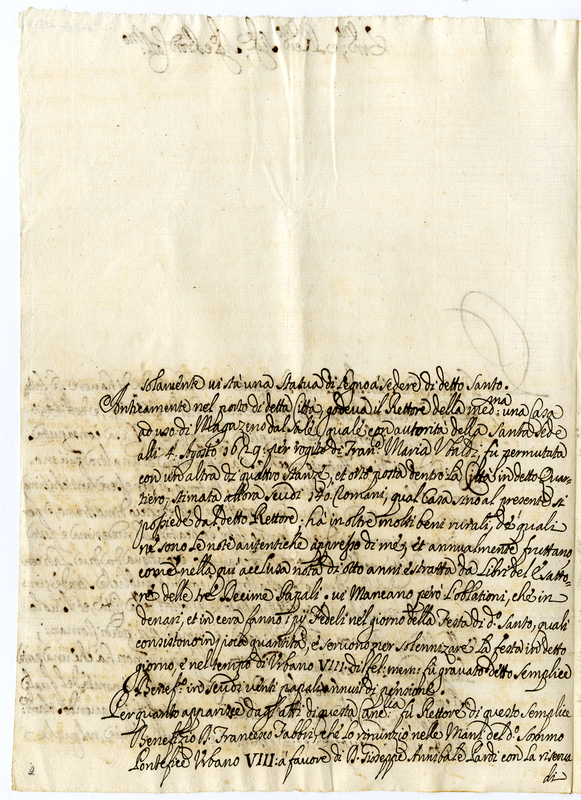 solam̃ente ui stà una Statua di legno à sedere di detto Santo.
Anticamente nel porto di detta Città godeva il Rettore della med:ma una Casa
ad uso di Magazeno dal Sale, quale con autorità della Santa Sede
alli 4. Agosto 1629: per rogito di Fran: Maria Vbaldi, fù permutata
con un'altra di quattro Stanze, et orto posta dentro la Città in detto Quar=
tiero, stimata allora Scudi 140: Romani, qual casa sino al presente si
possiede dal detto Rettore; hà inoltre molti beni rurali, de quali
ne sono le note autentiche appresso di me, et annualmente fruttano
come nella qui acclusa nota di otto anni estratta da libri del Esatto=
re delle tre Decime Papali. ui Mancano però l'oblationi, che in
denari, et in cera fanno i pij Fedeli nel giorno della Festa di d:o Santo, quali
consistono in poca quantità, e seruono per solennizare la festa in detto
giorno, e nel tempo di Urbano VIII. di fel: mem: fù gravato detto Semplice
Benef:o in Scudi venti papali annui di pensione.
Per quanto apparisce dagl'atti di questa Canc:lla fù Rettore di questo Semplice
Benefizio D. Francesco Fabbri, che lo rinunziò nelle Mani del d:o Sommo
Pontefice Vrbano VIII: à fauore di D. Gioseppe Annibale Lardi con la riserua
di